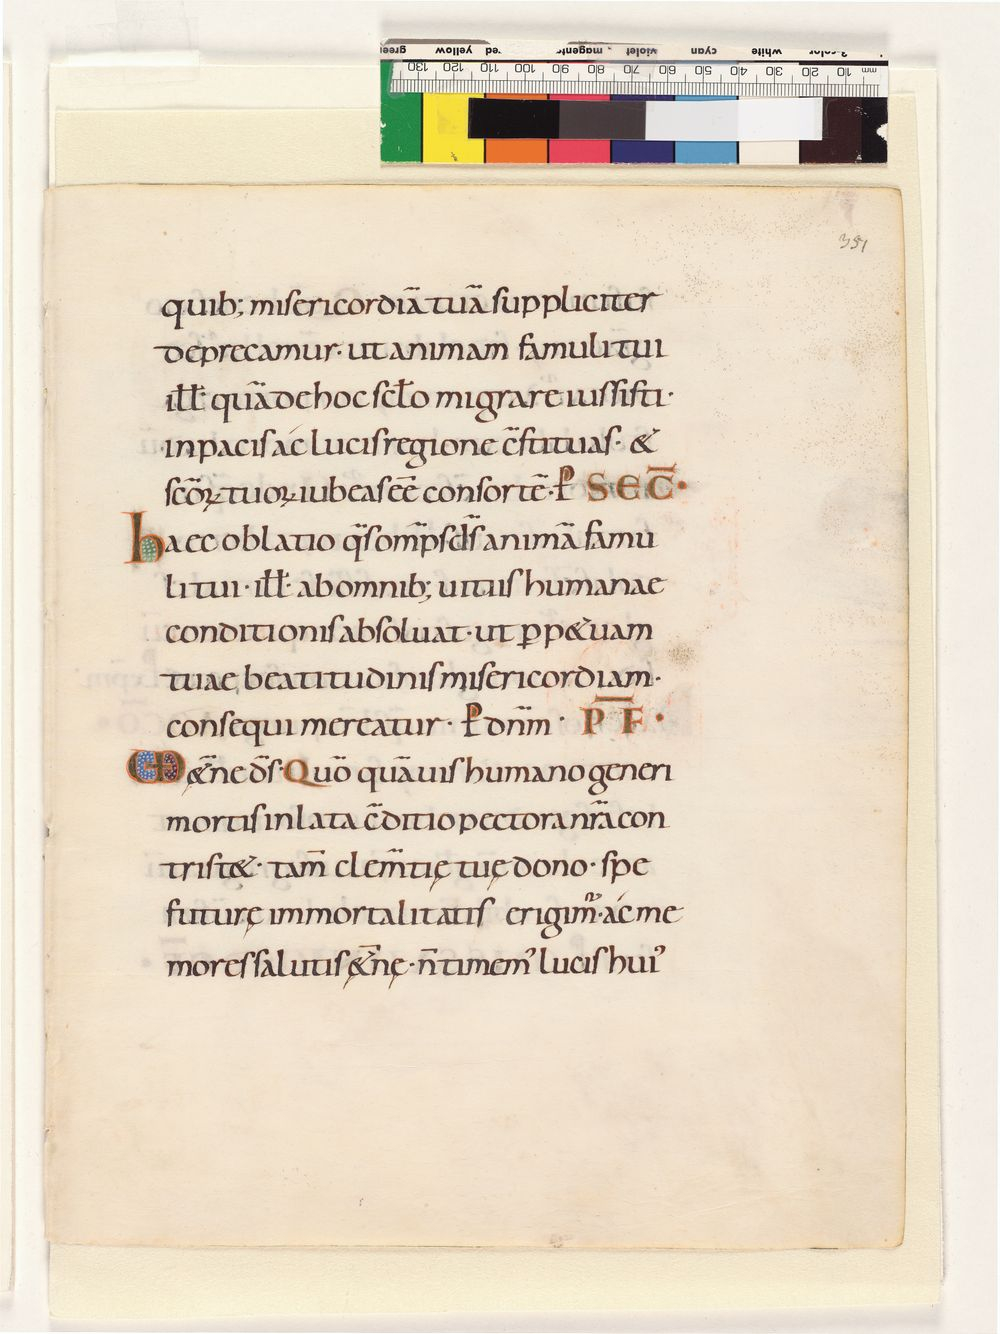 3-color white cyan violet magenta red yellow green
mm 10 20 30 40 50 60 70 80 90 100 110 120 130
351
quib; misericordiā tuā suppliciter
deprecamur· ut animam famuli tui
ill̅· quā de hoc scl̅o migrare iussisti·
in pacis ac lucis regione c̅stituas· &
sc̅oꝝ tuoꝝ iubeas ee̅ consorte̅· P̲ SEC̅·
haec oblatio q̅s om̅ps d̅s animā famu
li tui· ill̅· ab omnib; uitiis humanae
conditionis absoluat· ut ꝑp&uam
tuae beatitudinis misericordiam·
consequi mereatur· P̲ dn̅m· P̅F̅·
&̅ne d̅s· Quō quāuis humano generi
mortis inlata c̅ditio pectora nr̅a con
trist&· tam̅ clem̅tię tuę dono· spe
futurę immortalitatis erigim᷒· ac me
mores salutis &̅nę· n̅ timem᷒ lucis hui᷒